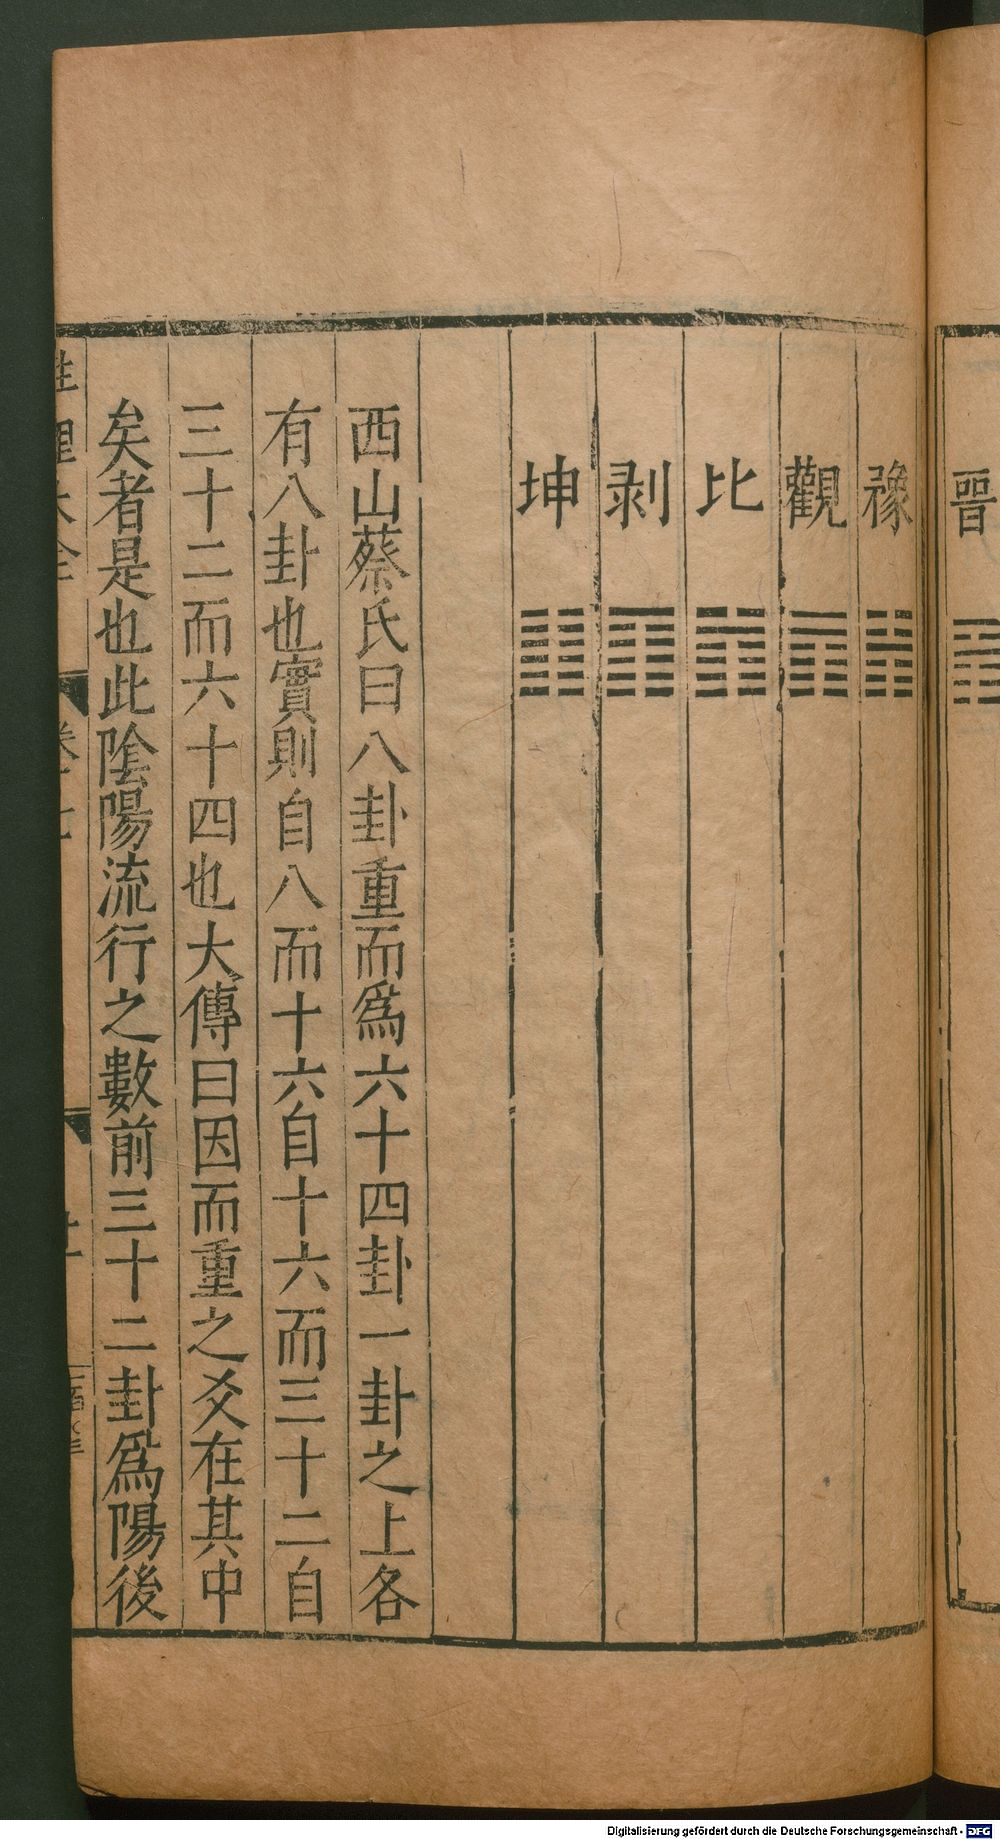 晉
豫
觀
比
剥
坤
西山蔡氏曰八卦重而爲六十四卦一卦之上各
有八卦也實則自八而十六自十六而三十二自
三十二而六十四也大傳曰因而重之爻在其中
矣者是也此陰陽流行之數前三十二卦爲陽後
性理大全
Digitalisierung gefördert durch die Deutsche Forschungsgemeinschaft - DFG